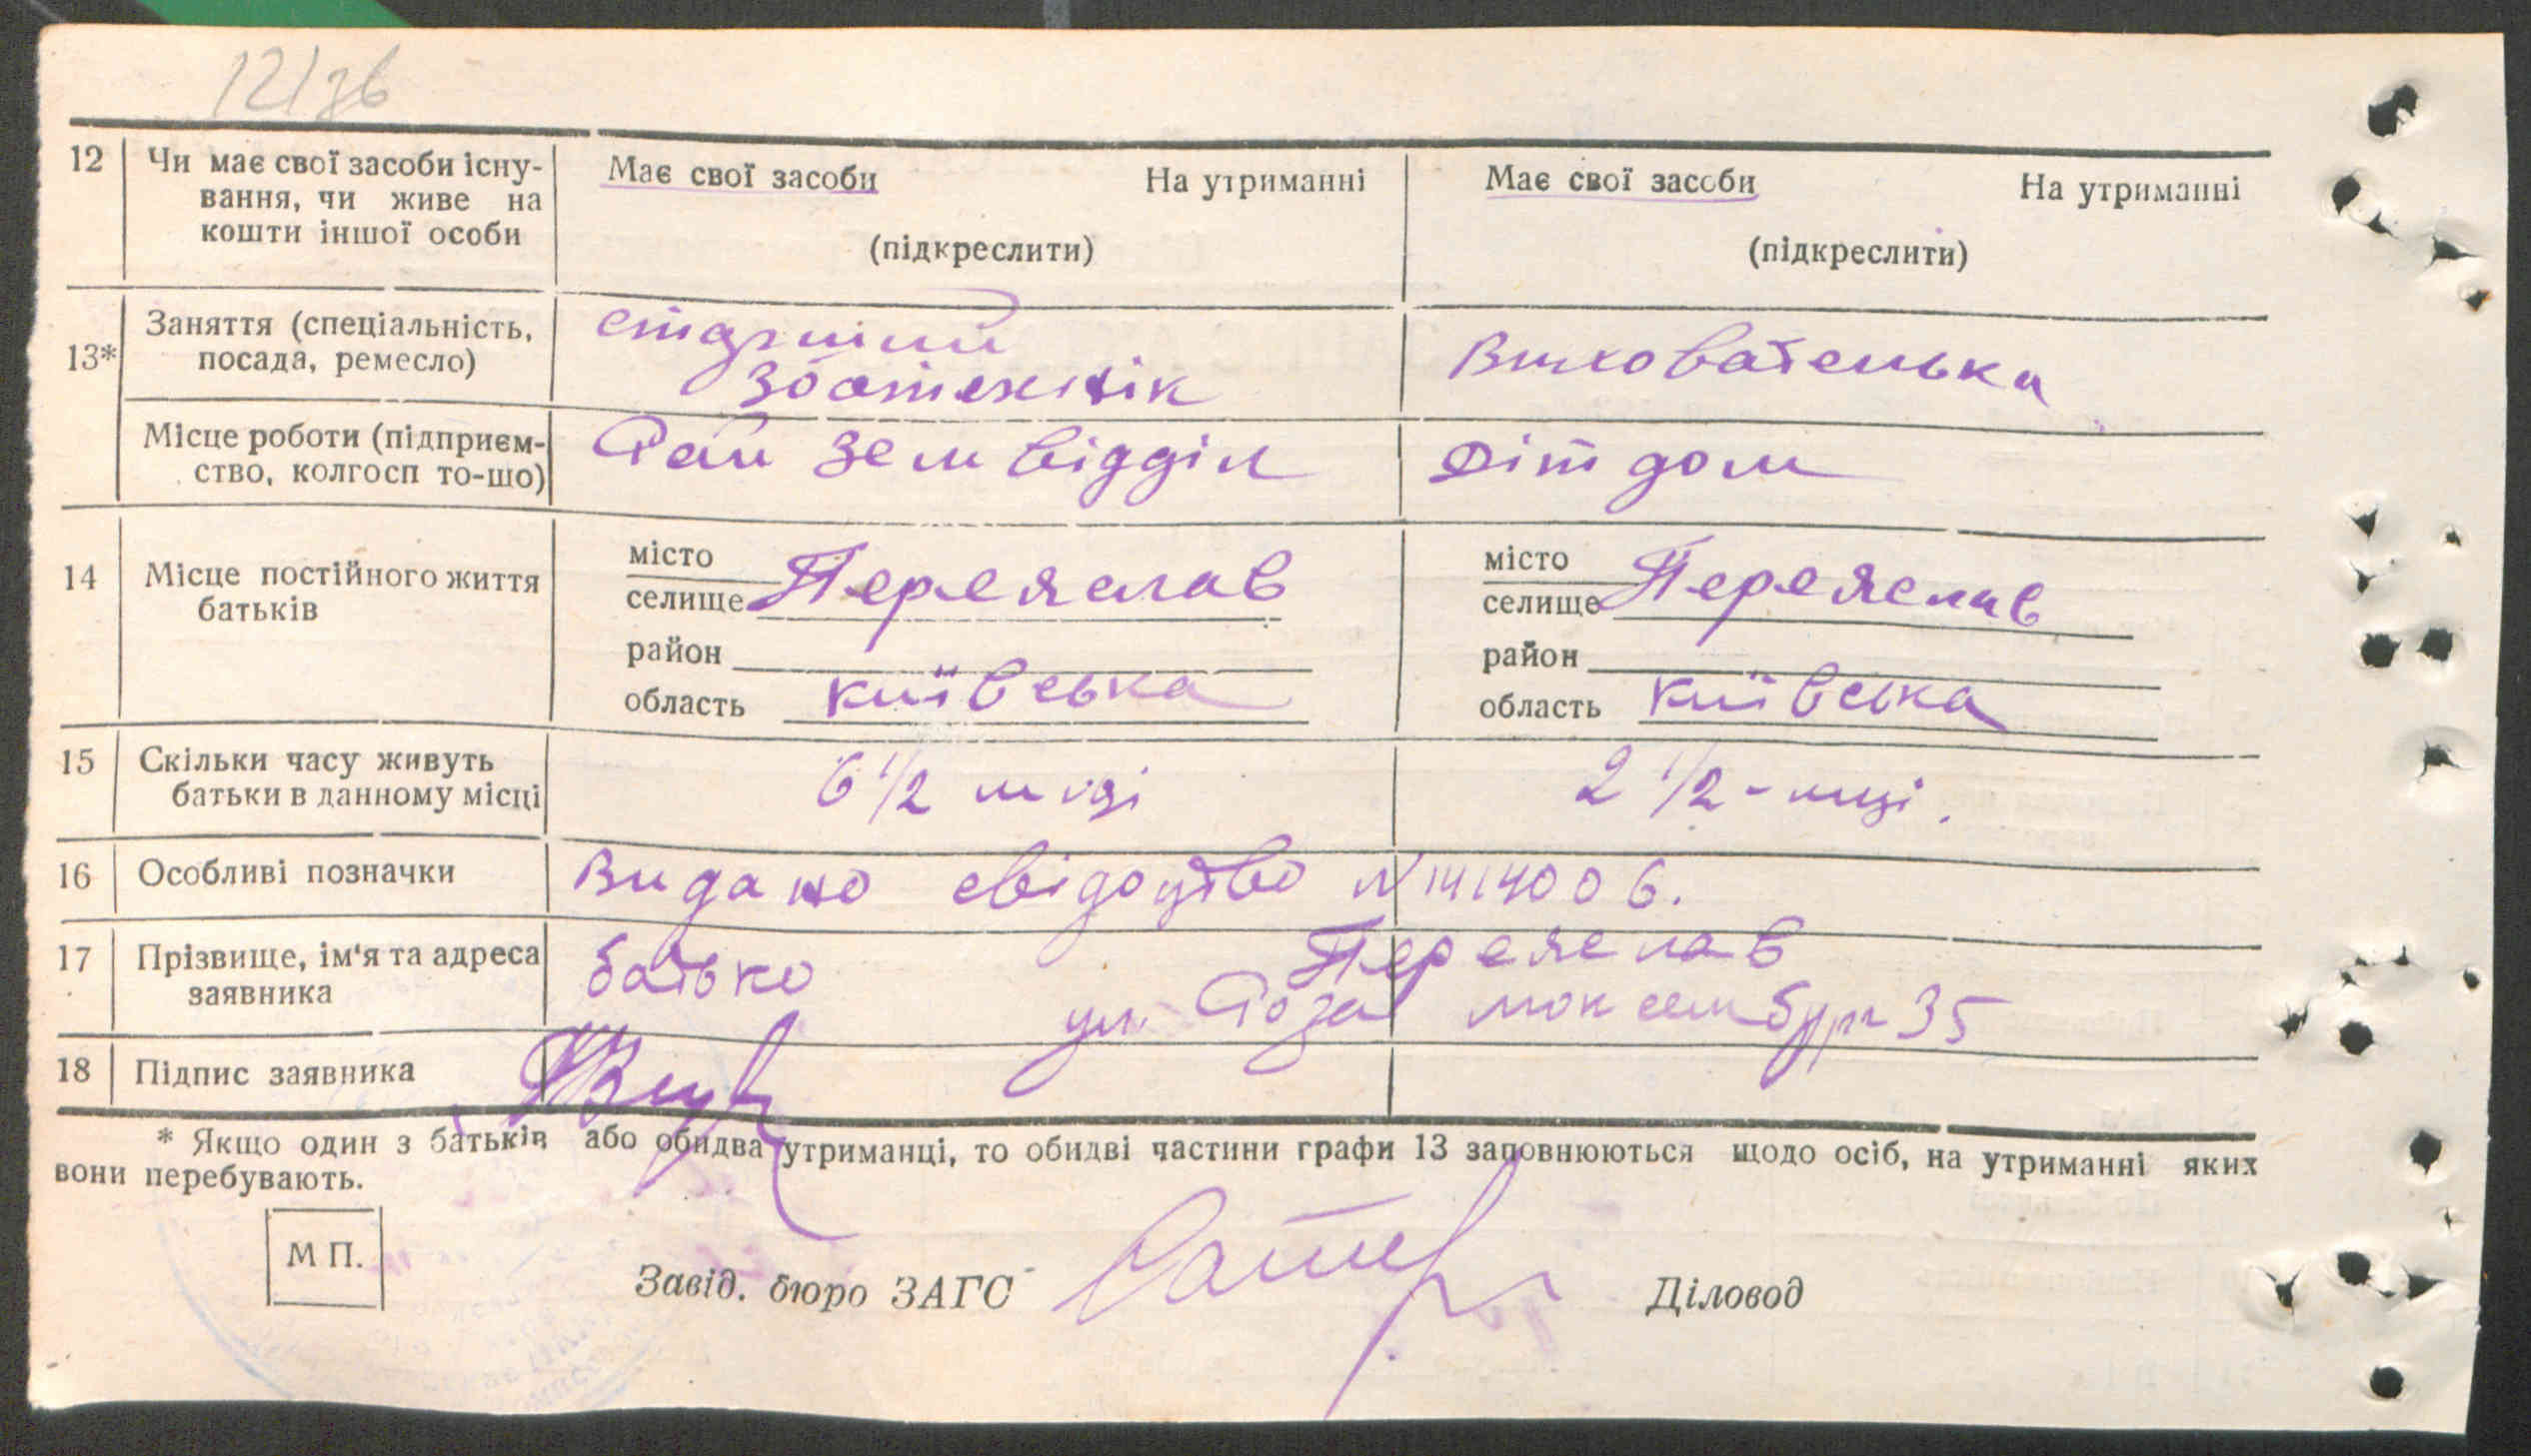 12/36
12 Чи має свої засоби існу- Має свої засоби На утриманні Має свої засоби На утриманні
вання, чи живе на
кошти іншої особи (підкреслити) (підкреслити)
13* Заняття (спеціальність, старший
посада, ремесло) зоотехнік Вихователька
Місце роботи (підприєм- Рай зем відділ Дітдом
ство, колгосп то-що)
14 Місце постійного життя місто Переяслав місто Переяслав
батьків селище селище
район район
область київська область київська
15 Скільки часу живуть 6 1/2 місі 2 1/2 - місі.
батьки в данному місці
16 Особливі позначки Видано свідоцтво N 1414006.
17 Прізвище, ім'я та адреса батько Переяслав
заявника ул. Роза 35
18 Підпис заявника
* Якщо один з батьків або обидва утриманці, то обидві частини графи 13 заповнюються щодо осіб, на утриманні яких
вони перебувають.
М П.
Завід. бюро ЗАГС Діловод